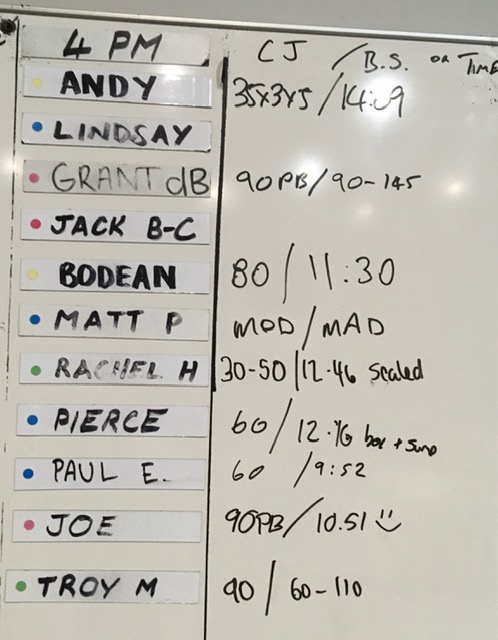 4 PM CJ / B.S. OR TIME
ANDY 35x3x5 / 14:09
LINDSAY
GRANT dB 90PB/90-145
JACK B-C
BODEAN 80 / 11:30
MATT P MOD / MAD
RACHEL H 30-50 / 12.46 scaled
PIERCE 60 / 12.16 box +
PAUL E. 60 / 9:52
JOE 90PB / 10.51
TROY M 90 / 60-110